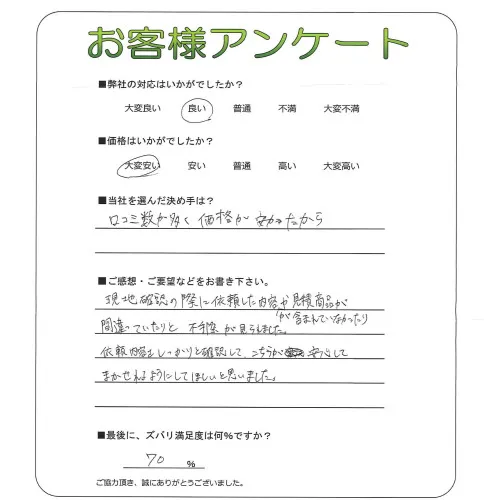 お客様アンケート
■弊社の対応はいかがでしたか？
大変良い 良い 普通 不満 大変不満
■価格はいかがでしたか？
大変安い 安い 普通 高い 大変高い
■当社を選んだ決め手は？
口コミ数が多く価格が安かったから
■ご感想・ご要望などをお書き下さい。
現地確認の際に依頼した内容や見積商品が
が含まれていなかったり
間違っていたりと 不手際が見られました。
依頼内容をしっかりと確認して、こちらが安心して
まかせれるようにしてほしいと思いました。
■最後に、ズバリ満足度は何％ですか？
70 ％
ご協力頂き、誠にありがとうございました。